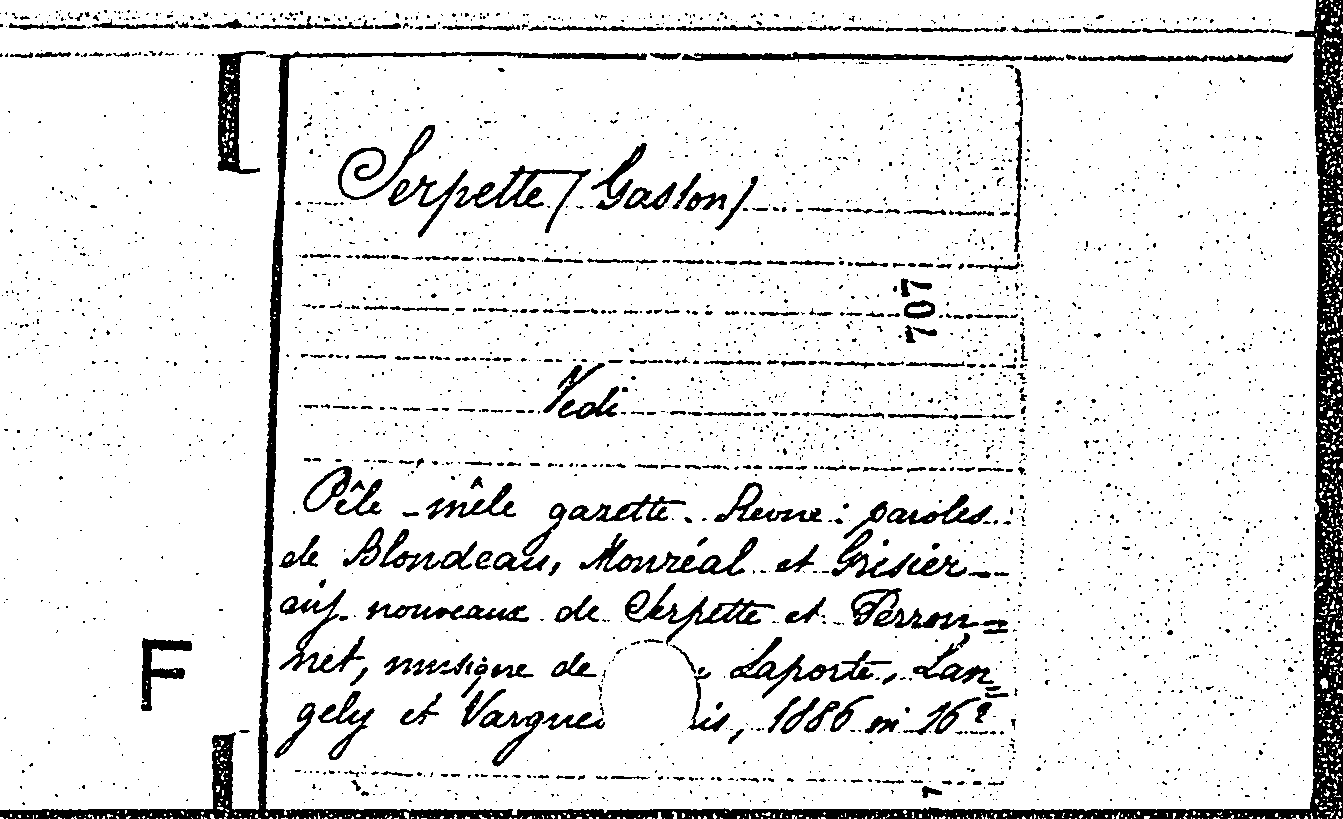 Serpette (Gaston)
707
Vedi
Pêle-mêle gazette. Revue: paroles
de Blondeau, Monréal et Grisier
airs nouveaux de Serpette et Perron=
net, musique de Laporte, Lan=
gely et Vargues is, 1886 in 16º
F